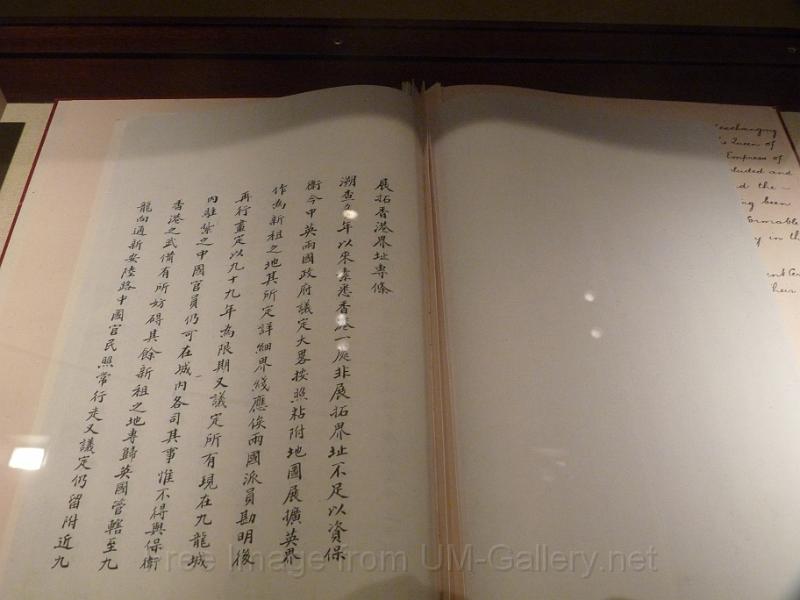 展拓香港界址專條
溯查多年以來素悉香港一處非展拓界址不足以資保
衛今中英兩國政府議定大畧按照粘附地圖展擴英界
作為新租之地其所定詳細界綫應俟兩國派員勘明後
再行畫定以九十九年為限期又議定所有現在九龍城
內駐紮之中國官員仍可在城內各司其事惟不得與保衛
香港之武備有所妨碍其餘新租之地專歸英國管轄至九
龍向通新安陸路中國官民照常行走又議定仍留附近九
exchanging
Queen of
Empress of
and
the
been
in the
Free Image from UM-Gallery.net